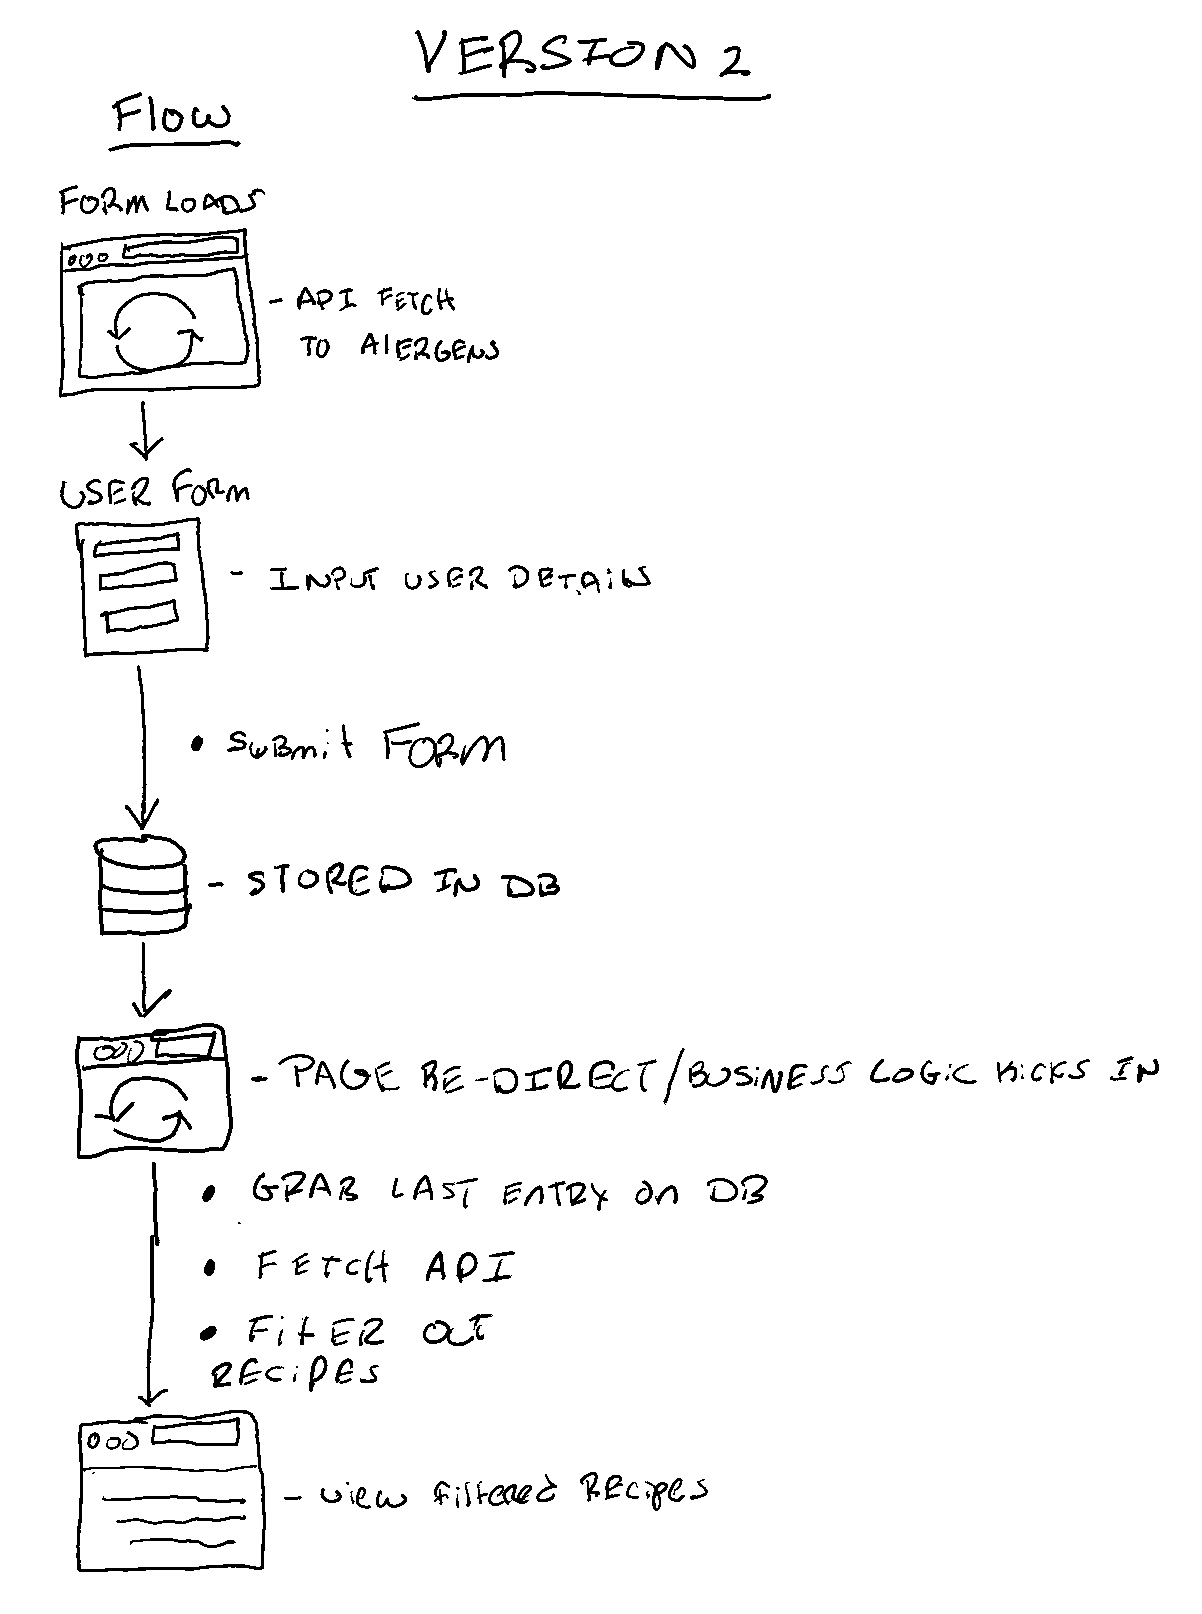 VERSION 2
Flow
FORM LOADS
- API FETCH
TO AlERGENS
USER FORM
- INPUT USER DETAilS
• submit FORM
- STORED IN DB
- PAGE RE-DIRECT/BUSiNESS LOGiC KiCKS IN
• GRAB LAST ENTRY On DB
• FETCH API
• FilTER OUT
RECiPES
- view filtered RECipes